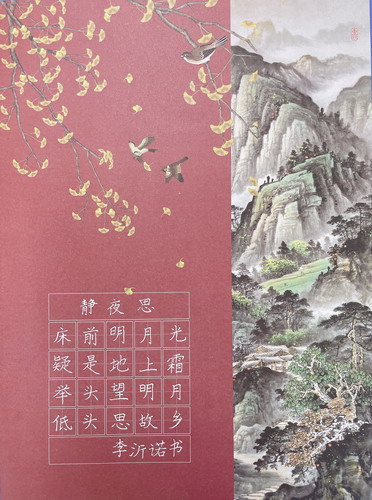 静夜思
床前明月光
疑是地上霜
举头望明月
低头思故乡
李沂诺书